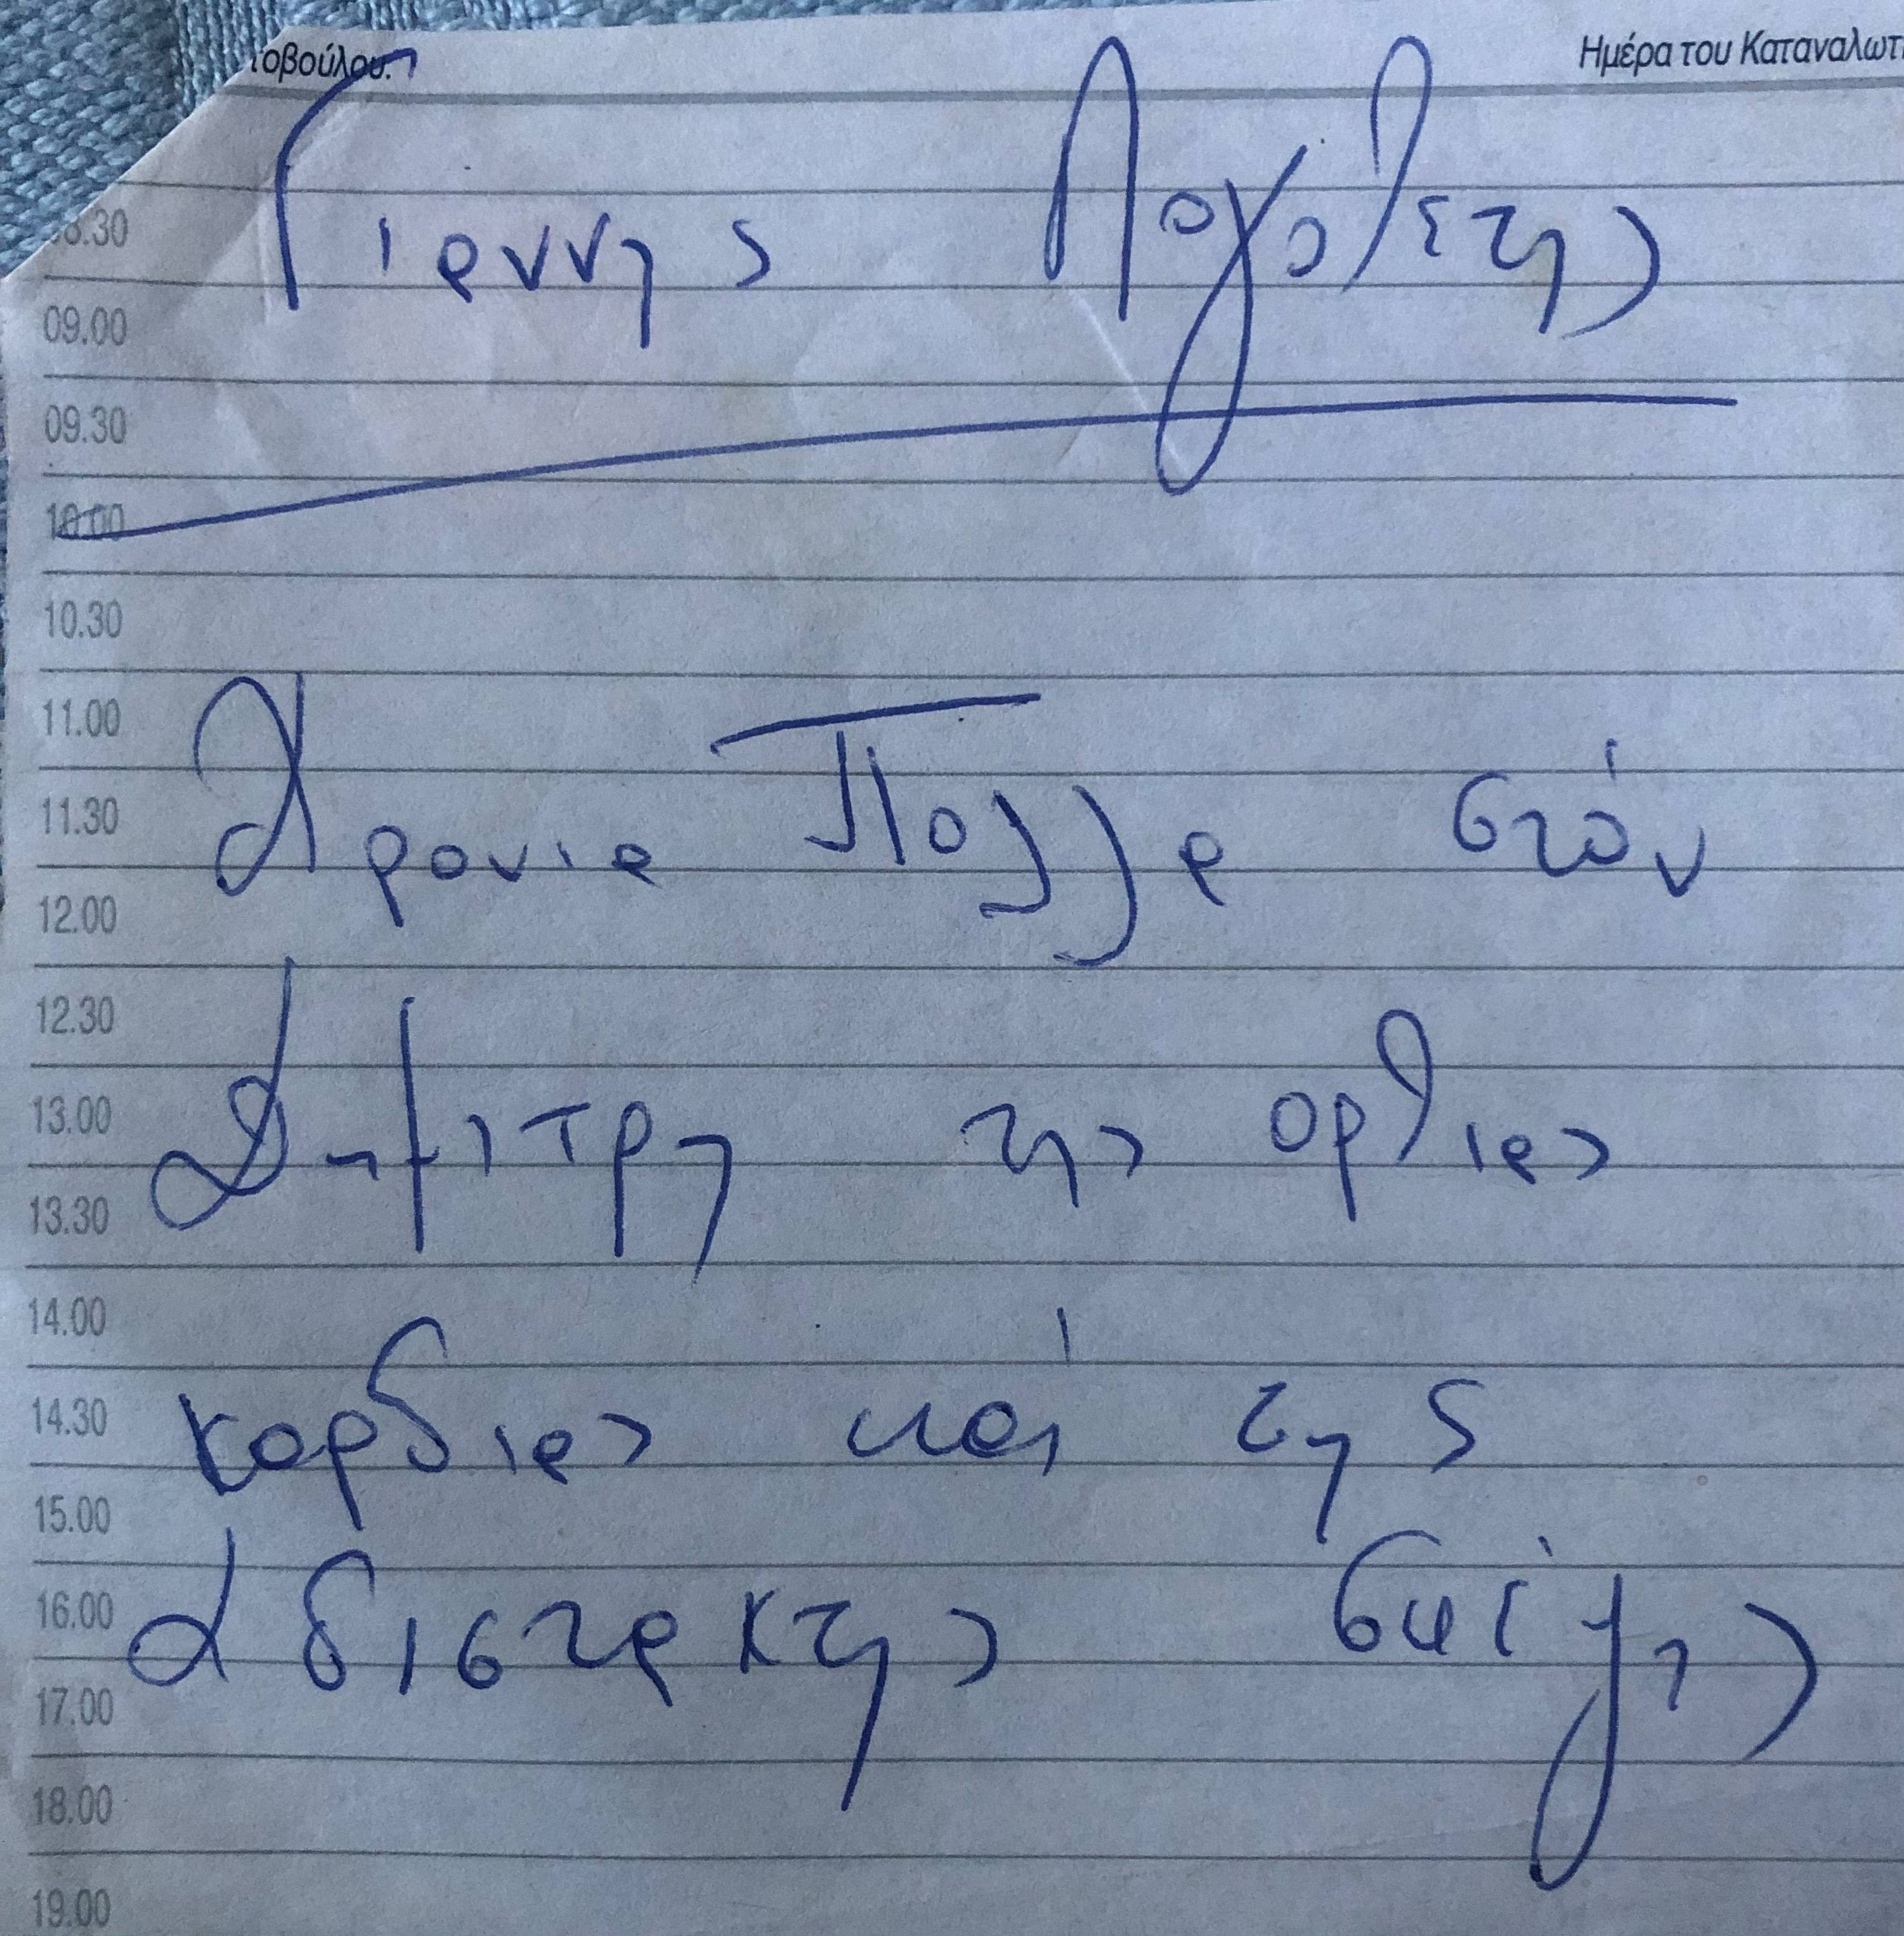 τοβούλου. Ημέρα του Καταναλωτ
Γιαννης Λογοθετης
08.30
09.00
09.30
10.00
10.30
11.00
11.30
Χρονια Πολλα στόν
12.00
12.30
13.00
Δημιτρη της ορθιας
13.30
14.00
14.30
καρδιας καί της
15.00
16.00
αδιστακτης
17.00
18.00
19.00